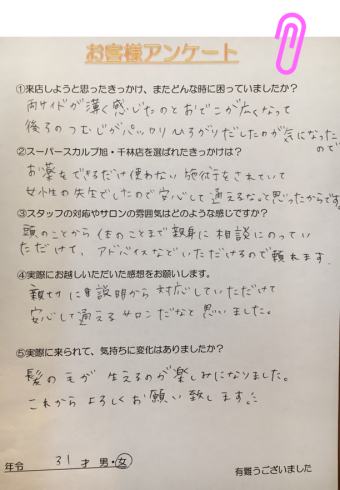 お客様アンケート
①来店しようと思ったきっかけ、またどんな時に困っていましたか?
両サイドが薄く感じたのとおでこが広くなって
後ろのつむじがパックリひろがりだしたのが気になった
ので
②スーパースカルプ旭・千林店を選ばれたきっかけは?
お薬をできるだけ使わない施術をされていて
女性の先生でしたので安心して通えるなと思ったからです
③スタッフの対応やサロンの雰囲気はどのような感じですか?
頭のことから体のことまで親身に相談にのってい
ただけて、アドバイスなどいただけるので頼れます。
④実際にお越しいただいた感想をお願いします。
親切に説明から対応していただけて
安心して通えるサロンだなと思いました。
⑤実際に来られて、気持ちに変化はありましたか?
髪の毛が生えるのが楽しみになりました。
これからよろしくお願い致します。
年令 31才 男・女
有難うございました